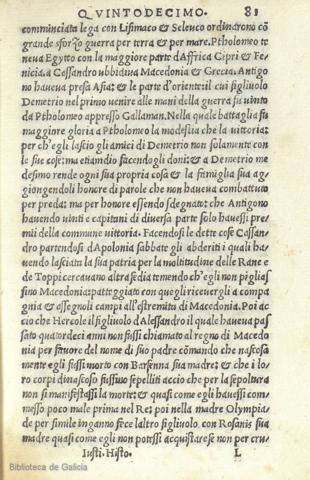 QVINTODECIMO. 81
comminciata lega con Lisimaco & Seleuco ordinarono cō
grande sforzo guerra per terra & per mare. Ptholomeo te
neua Egytto con la maggiore parte d'Affrica Cipri & Fe
nicia. a Cessandro ubbidiua Macedonia & Grecia. Antigo
no haueua presa Asia: & le parte d'oriente: il cui figliuolo
Demetrio nel primo uenire alle mani della guerra fu uinto
da Ptholomeo appresso Gallaman. Nella quale battaglia fu
maggiore gloria a Ptholomeo la modestia che la uittoria:
per ch'egli lascio gli amici di Demetrio non solamente con
le sue cose: ma etiamdio facendogli doni: & a Demetrio me
desimo rende ogni sua propria cosa & la famiglia sua ag
giongendoli honore di parole che non haueua combattuto
per preda: ma per honore essendo sdegnato: che Antigono
hauendo uinti e capitani di diuersa parte solo hauessi pre
mii della commune uittoria. Facendosi le dette cose Cessan
dro partendosi d'Apolonia sabbate gli abderiti i quali ha
uendo lasciata la sua patria per la moltitudine delle Rane e
de Toppi cercauano altra sedia temendo ch'egli non piglias
sino Macedonia: patteggiato con que gli riceuergli a compa
gnia & assegnoli campi all'estremita di Macedonia. Poi ac
cio che Hercole il figliuolo d'Alessandro il quale haueua pas
sato quatordeci anni non fussi chiamato al regno di Macedo
nia per fauore del nome di suo padre cōmando che nascosa
mente egli fussi morto con Barsenna sua madre: & che i lo
ro corpi di nascoso fussino sepelliti accio che per la sepoltura
non si manifestassi la morte: & quasi come egli hauessi com
messo poco male prima nel Re: poi nella madre Olympia
de per simile inganno fece l'altro figliuolo con Rosanis sua
madre quasi come egli non potessi acquistare se non per cru
Iusti. Histo. L
Biblioteca de Galicia